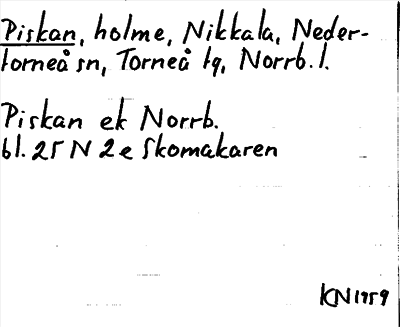 Piskan, holme, Nikkala, Neder-
torneå sn, Torneå tg, Norrb. l.
Piskan ek Norrb.
bl. 25 N 2 e Skomakaren
KN 1959